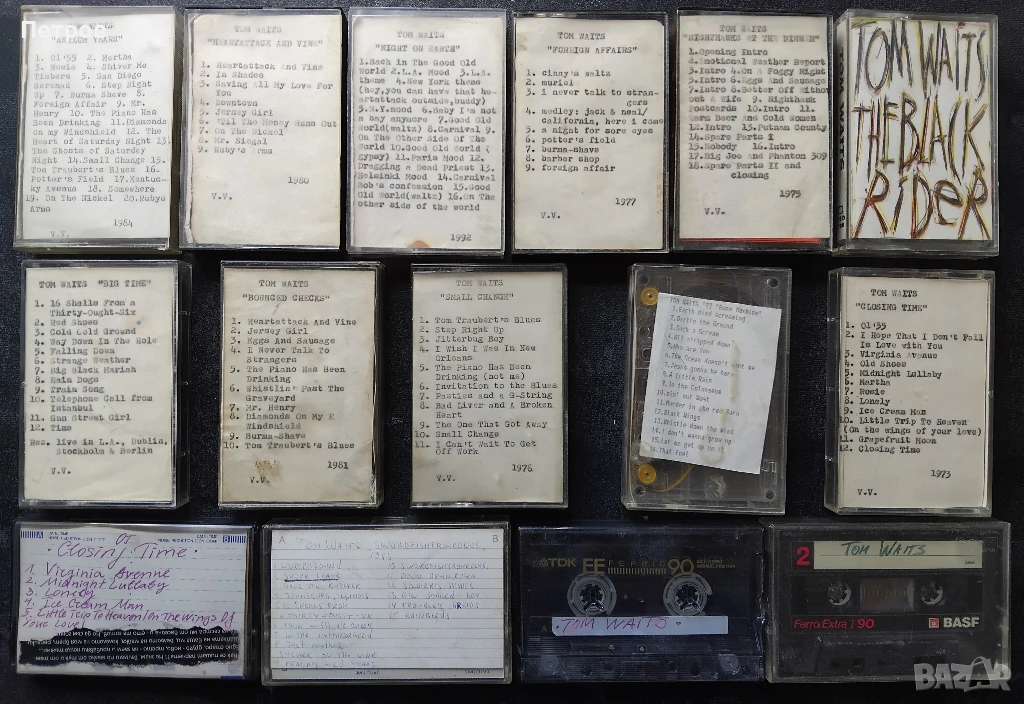 Петров
WAITS
"ASYLUM YEARS"
1. Ol'55 2. Martha
3. Rosie 4. Shiver Me
Timbers 5. San Diego
Serenad 6. Step Right
Up 7. Burma Shave 8.
Foreign Affair 9. Mr.
Henry 10. The Piano Has
Been Drinking 11. Diamonds
on my Windshield 12. The
Heart of Saturday Night 13.
The Ghosts of Saturday
Night 14. Small Change 15.
Tom Traubert's Blues 16.
Potter's Field 17. Kentuc-
ky Avenue 18. Somewhere
19. On The Nickel 20. Rubys
Arms
1984
V.V.
TOM WAITS
"HEARTATTACK AND VINE"
1. Heartattack and Vine
2. In Shades
3. Saving All My Love For
You
4. Downtown
5. Jersey Girl
6. 'Til The Money Runs Out
7. On The Nickel
8. Mr. Siegal
9. Ruby's Arms
1980
V.V.
TOM WAITS
"NIGHT ON EARTH"
1. Back in The Good Old
World 2. L.A. Mood 3. L.A.
theme 4. New York theme
(hey, you can have that he-
artattack outside, buddy)
5. N.Y. mood 6. Baby I'm not
a bay anymore 7. Good Old
World(waltz) 8. Carnival 9.
On The Other Side Of The
World 10. Good Old World (
gypsy) 11. Paris Mood 12.
Dragging a Dead Priest 13.
Helsinki Mood 14. Carnival
Bob's confession 15. Good
Old World(waltz) 16. On The
other side of the world
1992
TOM WAITS
"FOREIGN AFFAIRS"
1. cinny's waltz
2. muriel
3. i never talk to stran-
gers
4. medley: jack & neal/
california, here i come
5. a night for sore eyes
6. potter's field
7. burma-shave
8. barber shop
9. foreign affair
1977
V.V.
TOM WAITS
"NIGHTHAWKS AT THE DINNER"
1. Opening Intro
2. Emotional Weather Report
3. Intro 4. On a Foggy Night
5. Intro 6. Eggs and Sausage
7. Intro 8. Better Off Witho-
out A Wife 9. Nighthawks
Postcards 10. Intro 11.
Warm Beer and Cold Women
12. Intro 13. Putnam County
14. Spare Parts I
15. Nobody 16. Intro
17. Big Joe and Phantom 309
18. Spare Parts II and
closing
1975
V.V.
TOM WAITS
THE BLACK
RIDER
TOM WAITS "BIG TIME"
1. 16 Shells From a
Thirty-Ought-Six
2. Red Shoes
3. Cold Cold Ground
4. Way Down In The Hole
5. Falling Down
6. Strange Weather
7. Big Black Mariah
8. Rain Dogs
9. Train Song
10. Telephone Call from
Istanbul
11. Gun Street Girl
12. Time
Rec. live in L.A., Dublin,
Stockholm & Berlin
V.V.
TOM WAITS
"BOUNCED CHECKS"
1. Heartattack And Vine
2. Jersey Girl
3. Eggs And Sausage
4. I Never Talk To
Strangers
5. The Piano Has Been
Drinking
6. Whistlin' Past The
Graveyard
7. Mr. Henry
8. Diamonds On My
Windshield
9. Burma-Shave
10. Tom Traubert's Blues
1981
V.V.
TOM WAITS
"SMALL CHANGE"
1. Tom Traubert's Blues
2. Step Right Up
3. Jitterbug Boy
4. I Wish I Was In New
Orleans
5. The Piano Has Been
Drinking (not me)
6. Invitation to the Blues
7. Pasties and a G-String
8. Bad Liver and A Broken
Heart
9. The One That Got Away
10. Small Change
11. I Can't Wait To Get
Off Work
1976
V.V.
TOM WAITS '92 "Bone Machine"
1. Earth died screaming
2. Dirt in the Ground
3. Such a Scream
4. All stripped down
5. Who Are You
6. The Ocean doesn't want me
7. Jesus gonna be here
8. A little Rain
9. In the Colosseum
10. Goin' out West
11. Murder in the red Barn
12. Black Wings
13. Whistle down the Wind
14. I don't wanna grow up
15. Let me get up on it
16. That feel
TOM WAITS
"CLOSING TIME"
1. Ol'55
2. I Hope That I Don't Fall
In Love with You
3. Virginia Avenue
4. Old Shoes
5. Midnight Lullaby
6. Martha
7. Rosie
8. Lonely
9. Ice Cream Man
10. Little Trip To Heaven
(On the wings of your love)
11. Grapefruit Moon
12. Closing Time
1973
V.V.
ОТ
·Closing Time·
1. Virginia Avenne
2. Midnight Lullaby
3. Lonely
4. Ice Cream Man
5. Little Trip To Heaven (On The Wings Of
Your Love)
A
B
TOM WAITS
TDK
EE FERRIC 90
TOM WAITS
2
TOM WAITS
Ferro Extra I 90
BASF
BAZAR